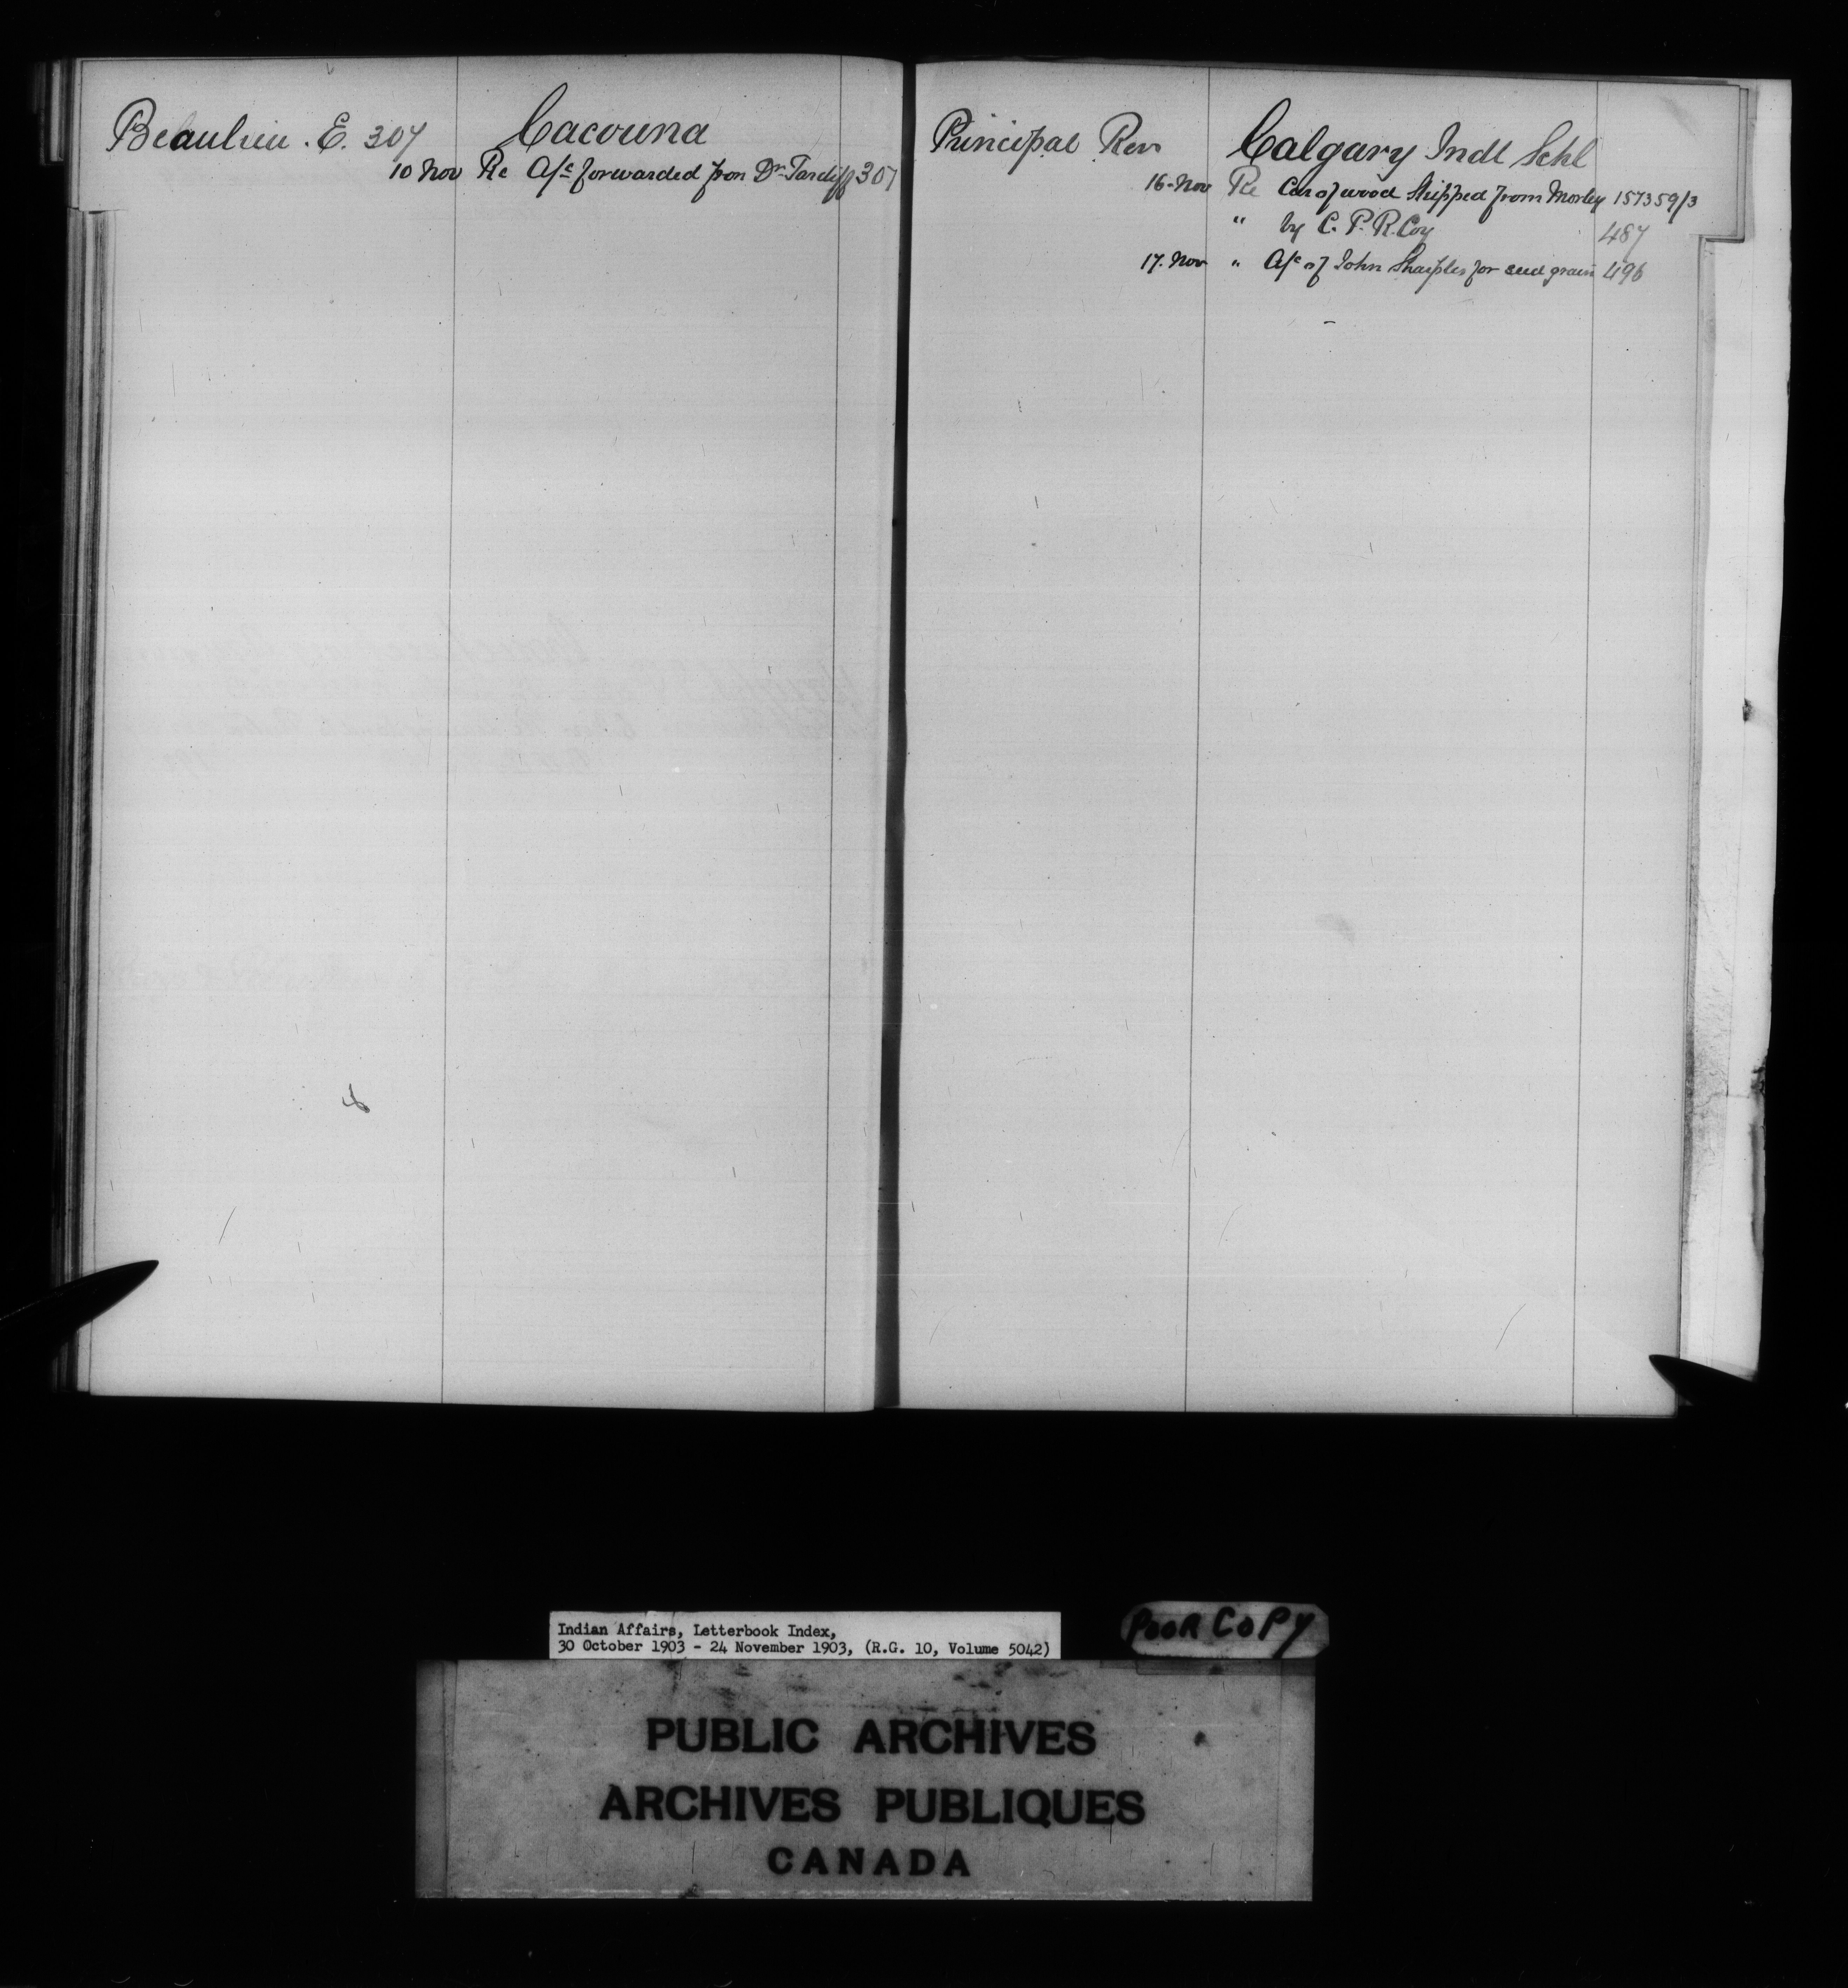 Beaulieu . E. 307 Cacouna
10 Nov Re A/c forwarded from Dr Tardiff 307
Principal Rev Calgary Indl Schl
16 - Nov Re Car of wood Shipped from Morley 157359/3
" by C. P. R. Coy 487
17. Nov " A/c of John Sharples for seed grain 496
Indian Affairs, Letterbook Index,
30 October 1903 - 24 November 1903, (R.G. 10, Volume 5042)
POOR COPY
PUBLIC ARCHIVES
ARCHIVES PUBLIQUES
CANADA